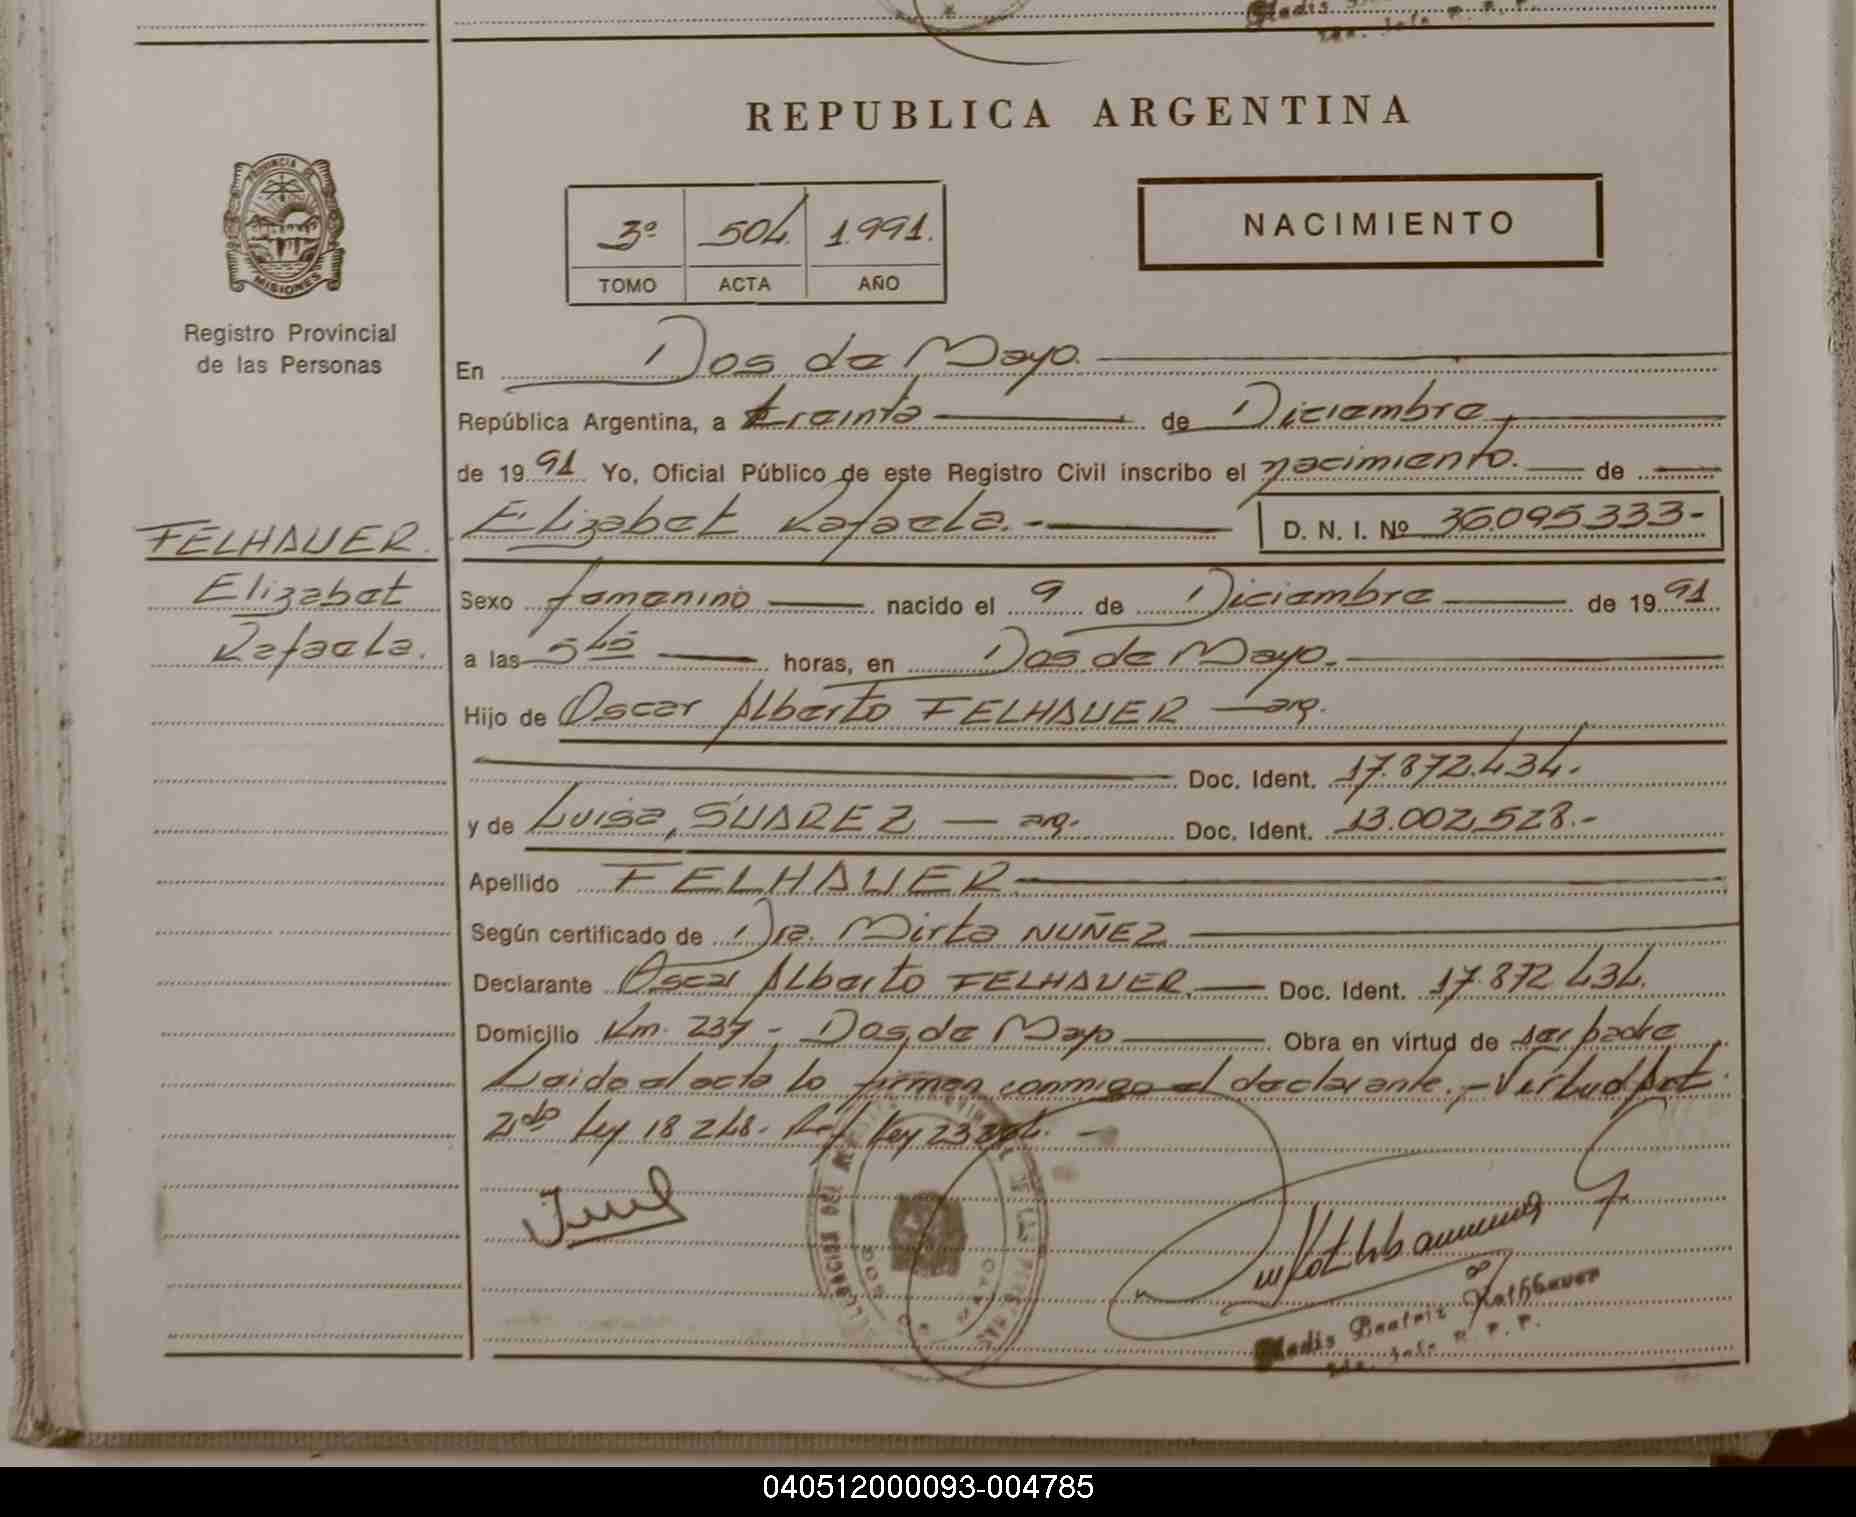 REPUBLICA ARGENTINA
PROVINCIA DE
MISIONES
Registro Provincial
de las Personas
3º 504 1.991.
TOMO ACTA AÑO
NACIMIENTO
En Dos de Mayo.
República Argentina, a treinta de Diciembre
de 1991 Yo, Oficial Público de este Registro Civil inscribo el nacimiento. de
Elizabet Rafaela.- D. N. I. Nº 36.095.333-
FELHAUER.
Elizabet
Rafaela.
Sexo femenino nacido el 9 de Diciembre de 1991
a las 5 45 horas, en Dos de Mayo.
Hijo de Oscar Alberto FELHAUER — arg.
Doc. Ident. 17.872.434.
y de Luisa, SUAREZ — arg. Doc. Ident. 13.002.528.-
Apellido FELHAUER
Según certificado de Dra. Mirta NUÑEZ
Declarante Oscar Alberto FELHAUER. Doc. Ident. 17.872 434.
Domicilio Km. 237 - Dos de Mayo Obra en virtud de ser padre
Leida el acta lo firman conmigo el declarante.- Virtud Art.
2do Ley 18 248. Ley
Gladis Beatriz Rathbauer
2da. Jefe R. P. P.
040512000093-004785